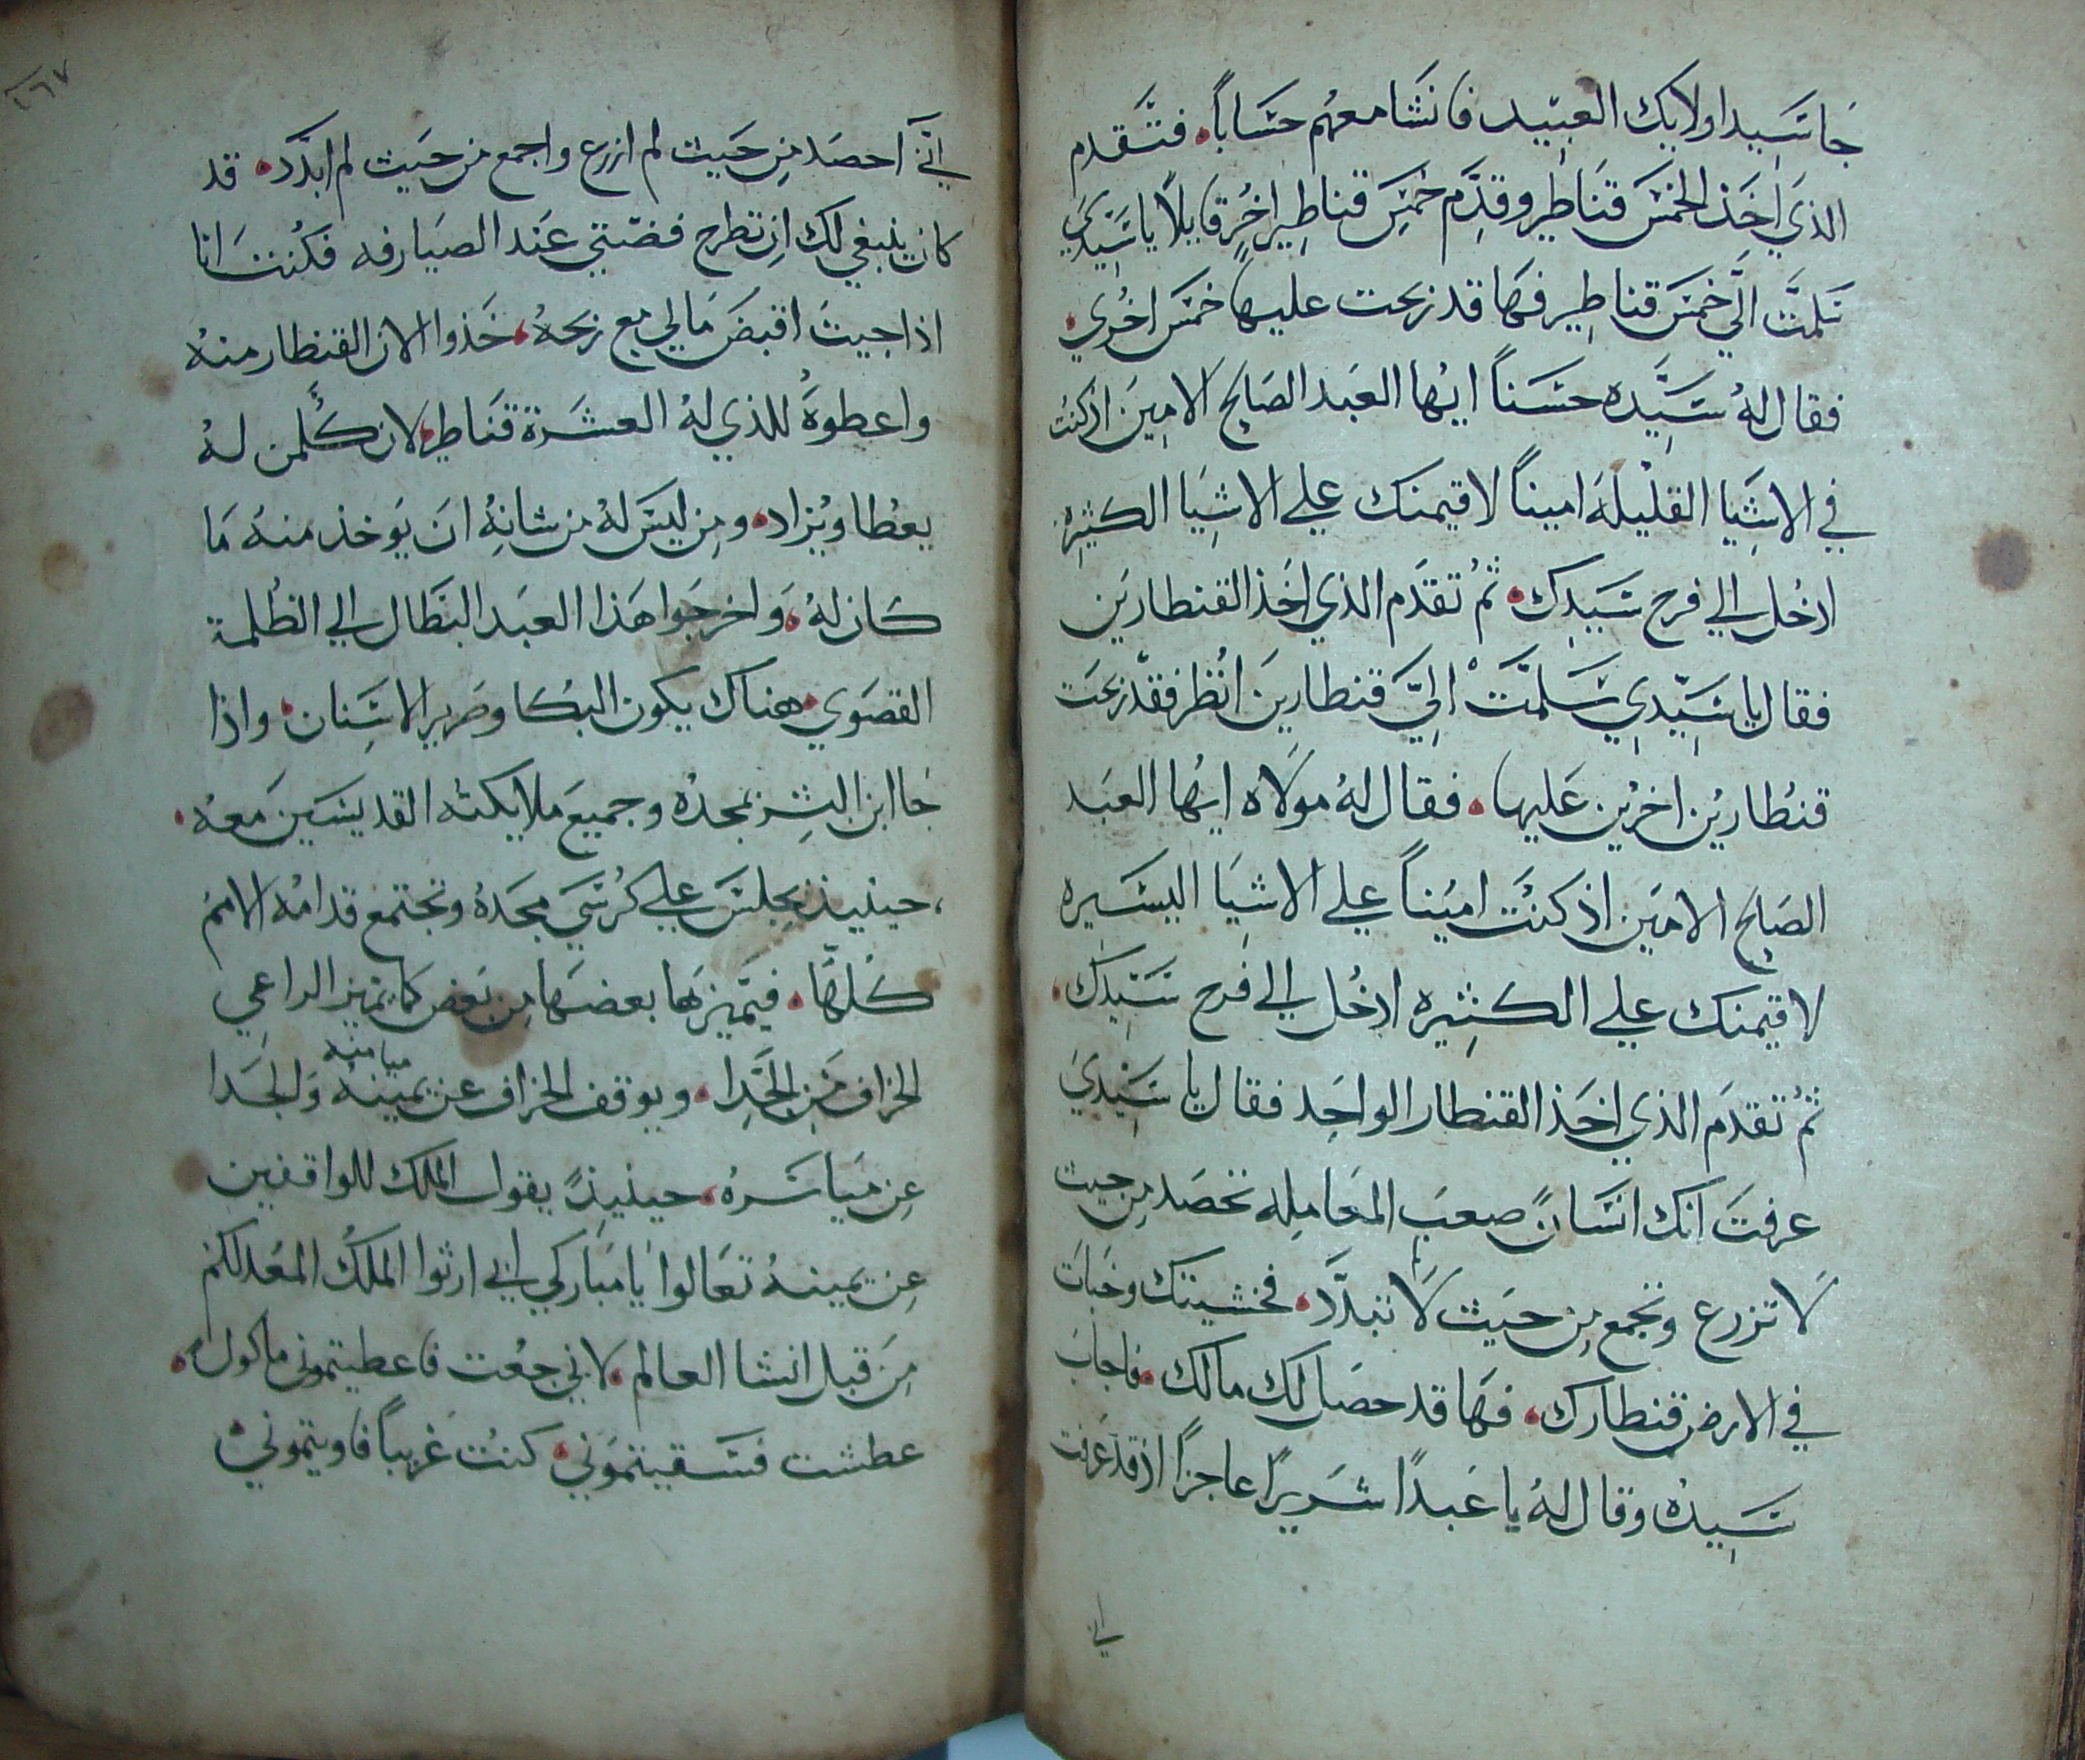 جا سَيد اولايك العبيد فانشا معهم حسَاباً. فتقدم
الذي اخذ الخمسَ قنَاطير وقدَّم خمسَ قناطِير اخُرٍ قايلاً يا سَيّدي
سَلمتَ اليَّ خمسَ قناطِير فهَا قد ربحت عليها خمسَ اخُري.
فقال لهُ سَيَّده حسَناً ايهَا العَبد الصَالح الامِينَ اذ كنتُ
في الاشِيَا القليْلهَ اميناً لاقيمنك علي الاشِيَا الكثيِره
ادخُل الي فرح سَيَدِك. ثمُ تقدَم الذي اخَذ القنطاريَن
فقال يا سَيّدِي سَلمَّتَ اليَّ قنطارينَ انُظر فقدْ ربحَت
قنطُاريْن اخريْن عَليها. فقال لهُ مولَاه ايهُا العبَد
الصَالح الامَين اذ كنُتَ اميُناً علي الاشيَا اليسَيره
لاقيمنك علي الكثيِره ادخُل الي فرح سَيَدِك.
ثمُ تقدَم الذي اخَذ القنطار الواحَد فقال يا سَيْدِيَ
عرفتَ انك انسَانً صعبَ المعَامِله تحصَد مِن حيث
لَا تزرع وتجمع مِن حيَث لَا تبدَّد. فخشيتك وخبَات
في الارض قنطارك. فهَا قد حصَل لك مالك. فاجابَ
سَيِدهُ وقال لهُ يا عَبداً شَريراً عاجزاً اذ قد عَرفت
اني
٢٦٧
انيّ احصَد مِن حَيث لم ازرع واجمع من حيَث لم ابدَّد. قد
كان ينبغي لك انِ تطرح فضّتي عنَد الصيَارفه فكُنتَ انا
اذا جيتَ اقبضَ مَالي مع ربحهُ. خَذوا الان القنطار منهُ
واعطوهُ للذي لهُ العشَرَة قنَاطير. لان كُلمن لهُ
يعطُا ويُزاد. ومِن ليسَ لهُ من شانِهُ انَ يَوخذ منهُ مَا
كان لهُ. وَاخرجَوا هَذا العبَد البَطال الي الظُلمة
القصَوي. هناك يكون البُكا وصَرير الاسَنان. واذا
جَا ابن البشِر بمجدهُ وجميعَ ملايكته القديسَين مَعهُ.
حينيذ يجلسَ علي كُرسَي مجَدهُ وتجتمع قدامُه الامم
كُلهَّا. فيَميزها بعضهَا مِن بَعضَ كما يميز الراعي
الخراف مَن الجَدِا. ويوقف الخراف عن يمينهُ وَالجَدا
ميامنه
عِن ميَاسَرهُ. حينيذٍ يقول الملك للواقفين
عِن يمينهُ تعَالوا يا مَباركي ابي ارثوا الملكُ المعَد لكم
مِنَ قبل انشا العالم. لاني جعُت فاعطيتموني ماكولاً.
عطشت فسَقيتموَني. كنُت غريباً فاويتموني